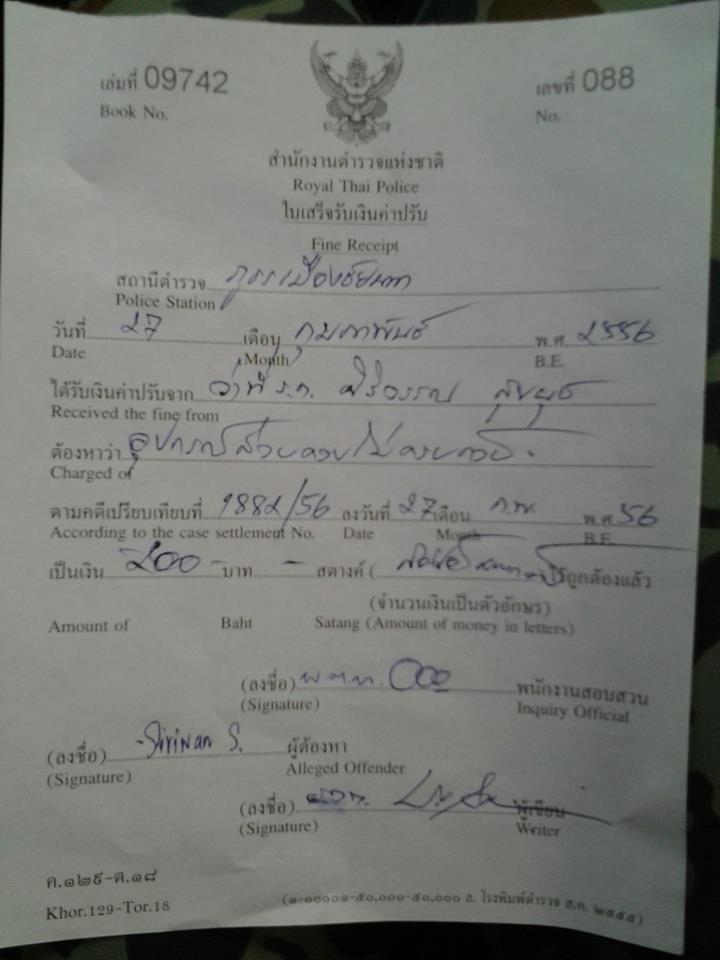 เล่มที่ 09742 เลขที่ 088
Book No. No.
สำนักงานตำรวจแห่งชาติ
Royal Thai Police
ใบเสร็จรับเงินค่าปรับ
Fine Receipt
สถานีตำรวจ ภูธรเมืองชัยนาท
Police Station
วันที่ 27 เดือน กุมภาพันธ์ พ.ศ. 2556
Date Month B.E.
ได้รับเงินค่าปรับจาก ว่าที่ ร.ต. ศิริวรรณ
Received the fine from
ต้องหาว่า อุปกรณ์ส่วนควบไม่ครบถ้วน
Charged of
ตามคดีเปรียบเทียบที่ 1882/56 ลงวันที่ 27 เดือน ก.พ. พ.ศ. 56
According to the case settlement No. Date Month B.E.
เป็นเงิน 200 - บาท - สตางค์ ( สองร้อยบาท ) ไว้ถูกต้องแล้ว
(จำนวนเงินเป็นตัวอักษร)
Amount of Baht Satang (Amount of money in letters)
(ลงชื่อ) พ.ต.ท. พนักงานสอบสวน
(Signature) Inquiry Official
(ลงชื่อ) Siriwan S. ผู้ต้องหา
(Signature) Alleged Offender
(ลงชื่อ) ผู้เขียน
(Signature) Writer
ค.๑๒๙-ต.๑๘
Khor.129-Tor.18
(๑-๐๐๐๐๑-๕๐,๐๐๐-๕๐,๐๐๐ ล. โรงพิมพ์ตำรวจ ส.ค. ๒๕๕๕)